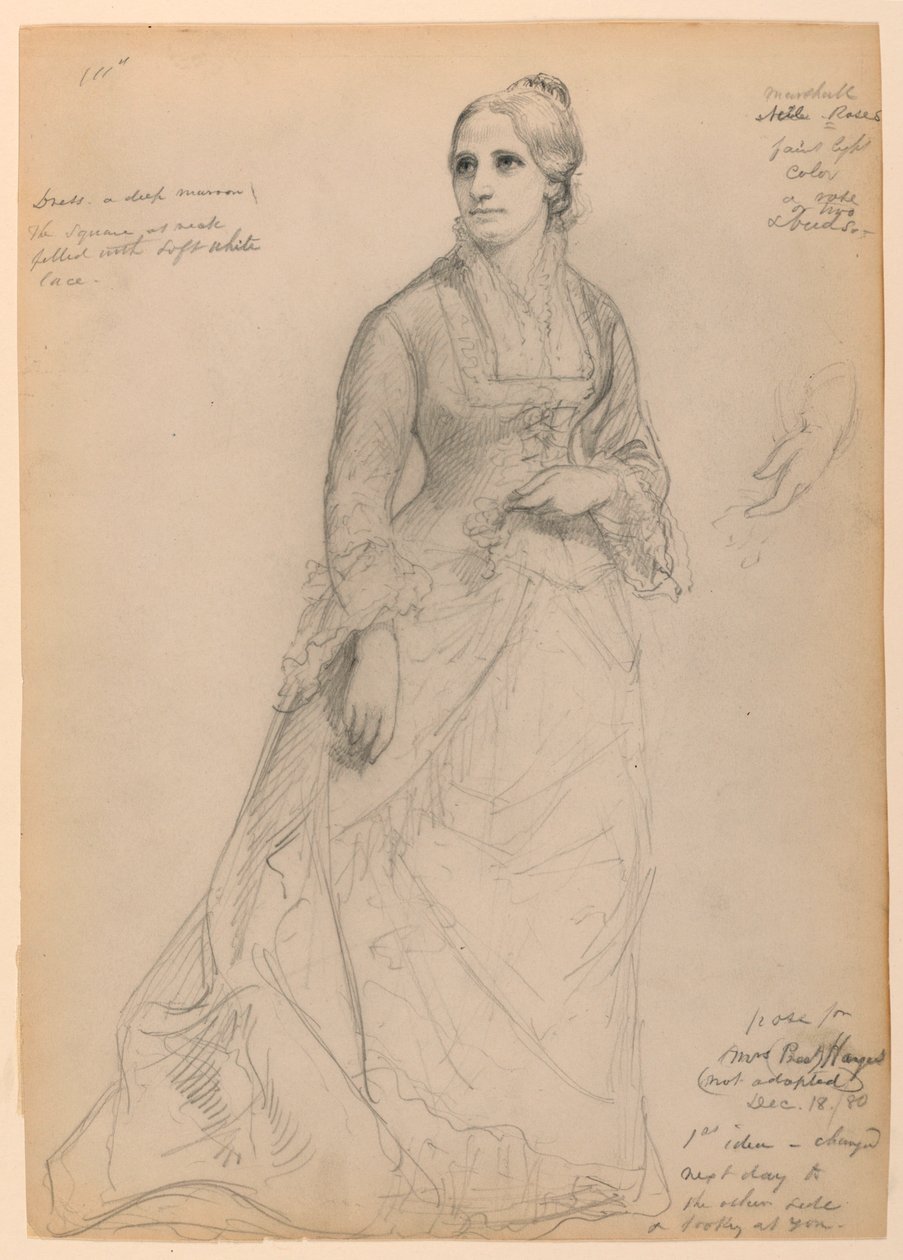 111"
Dress. a deep maroon
The Square at neck
filled with soft white
lace.
marshall
Neile Roses
faint light
color
a rose
or two
& buds.
pose for
Mrs (Pres) Hayes
(not adopted)
Dec. 18. 80
1st idea - changed
next day to
the other side
& looking at you.